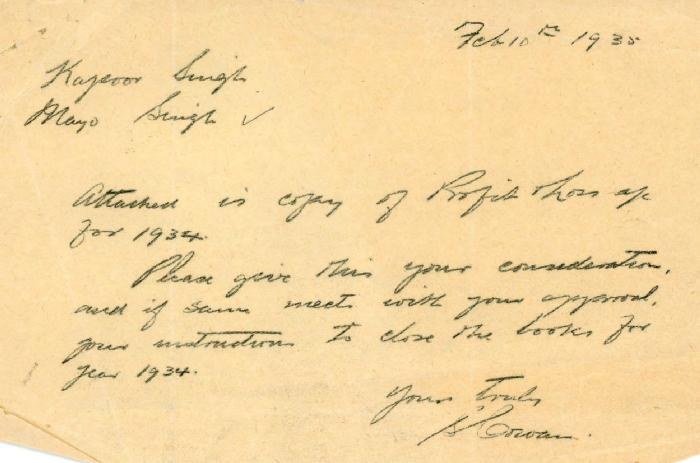 Feb 10th 1935
Kapoor Singh
Mayo Singh ✓
Attached is copy of Profit & Loss a/c
for 1934.
Please give this your consideration,
and if same meets with your approval,
your instructions to close the books for
year 1934.
Yours Truly
Cowan.